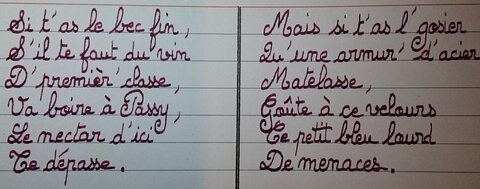 Si t'as le bec fin,
S'il te faut du vin
D' premièr' classe,
Va boire à Passy,
Le nectar d'ici
Te dépasse.
Mais si t'as l' gosier
Qu'une armur' d'acier
Matelasse,
Goûte à ce velours
Ce petit bleu lourd
De menaces.